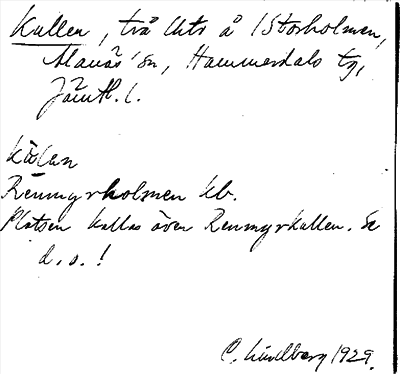 Kullen, två lhtr å 1 Storholmen,
Alanäs sn, Hammerdals tg,
Jämtl. l.
ködlan
Renmyrholmen kb.
Platsen kallas även Renmyrkullen. Se
d. o. !
C. Lindberg 1929.